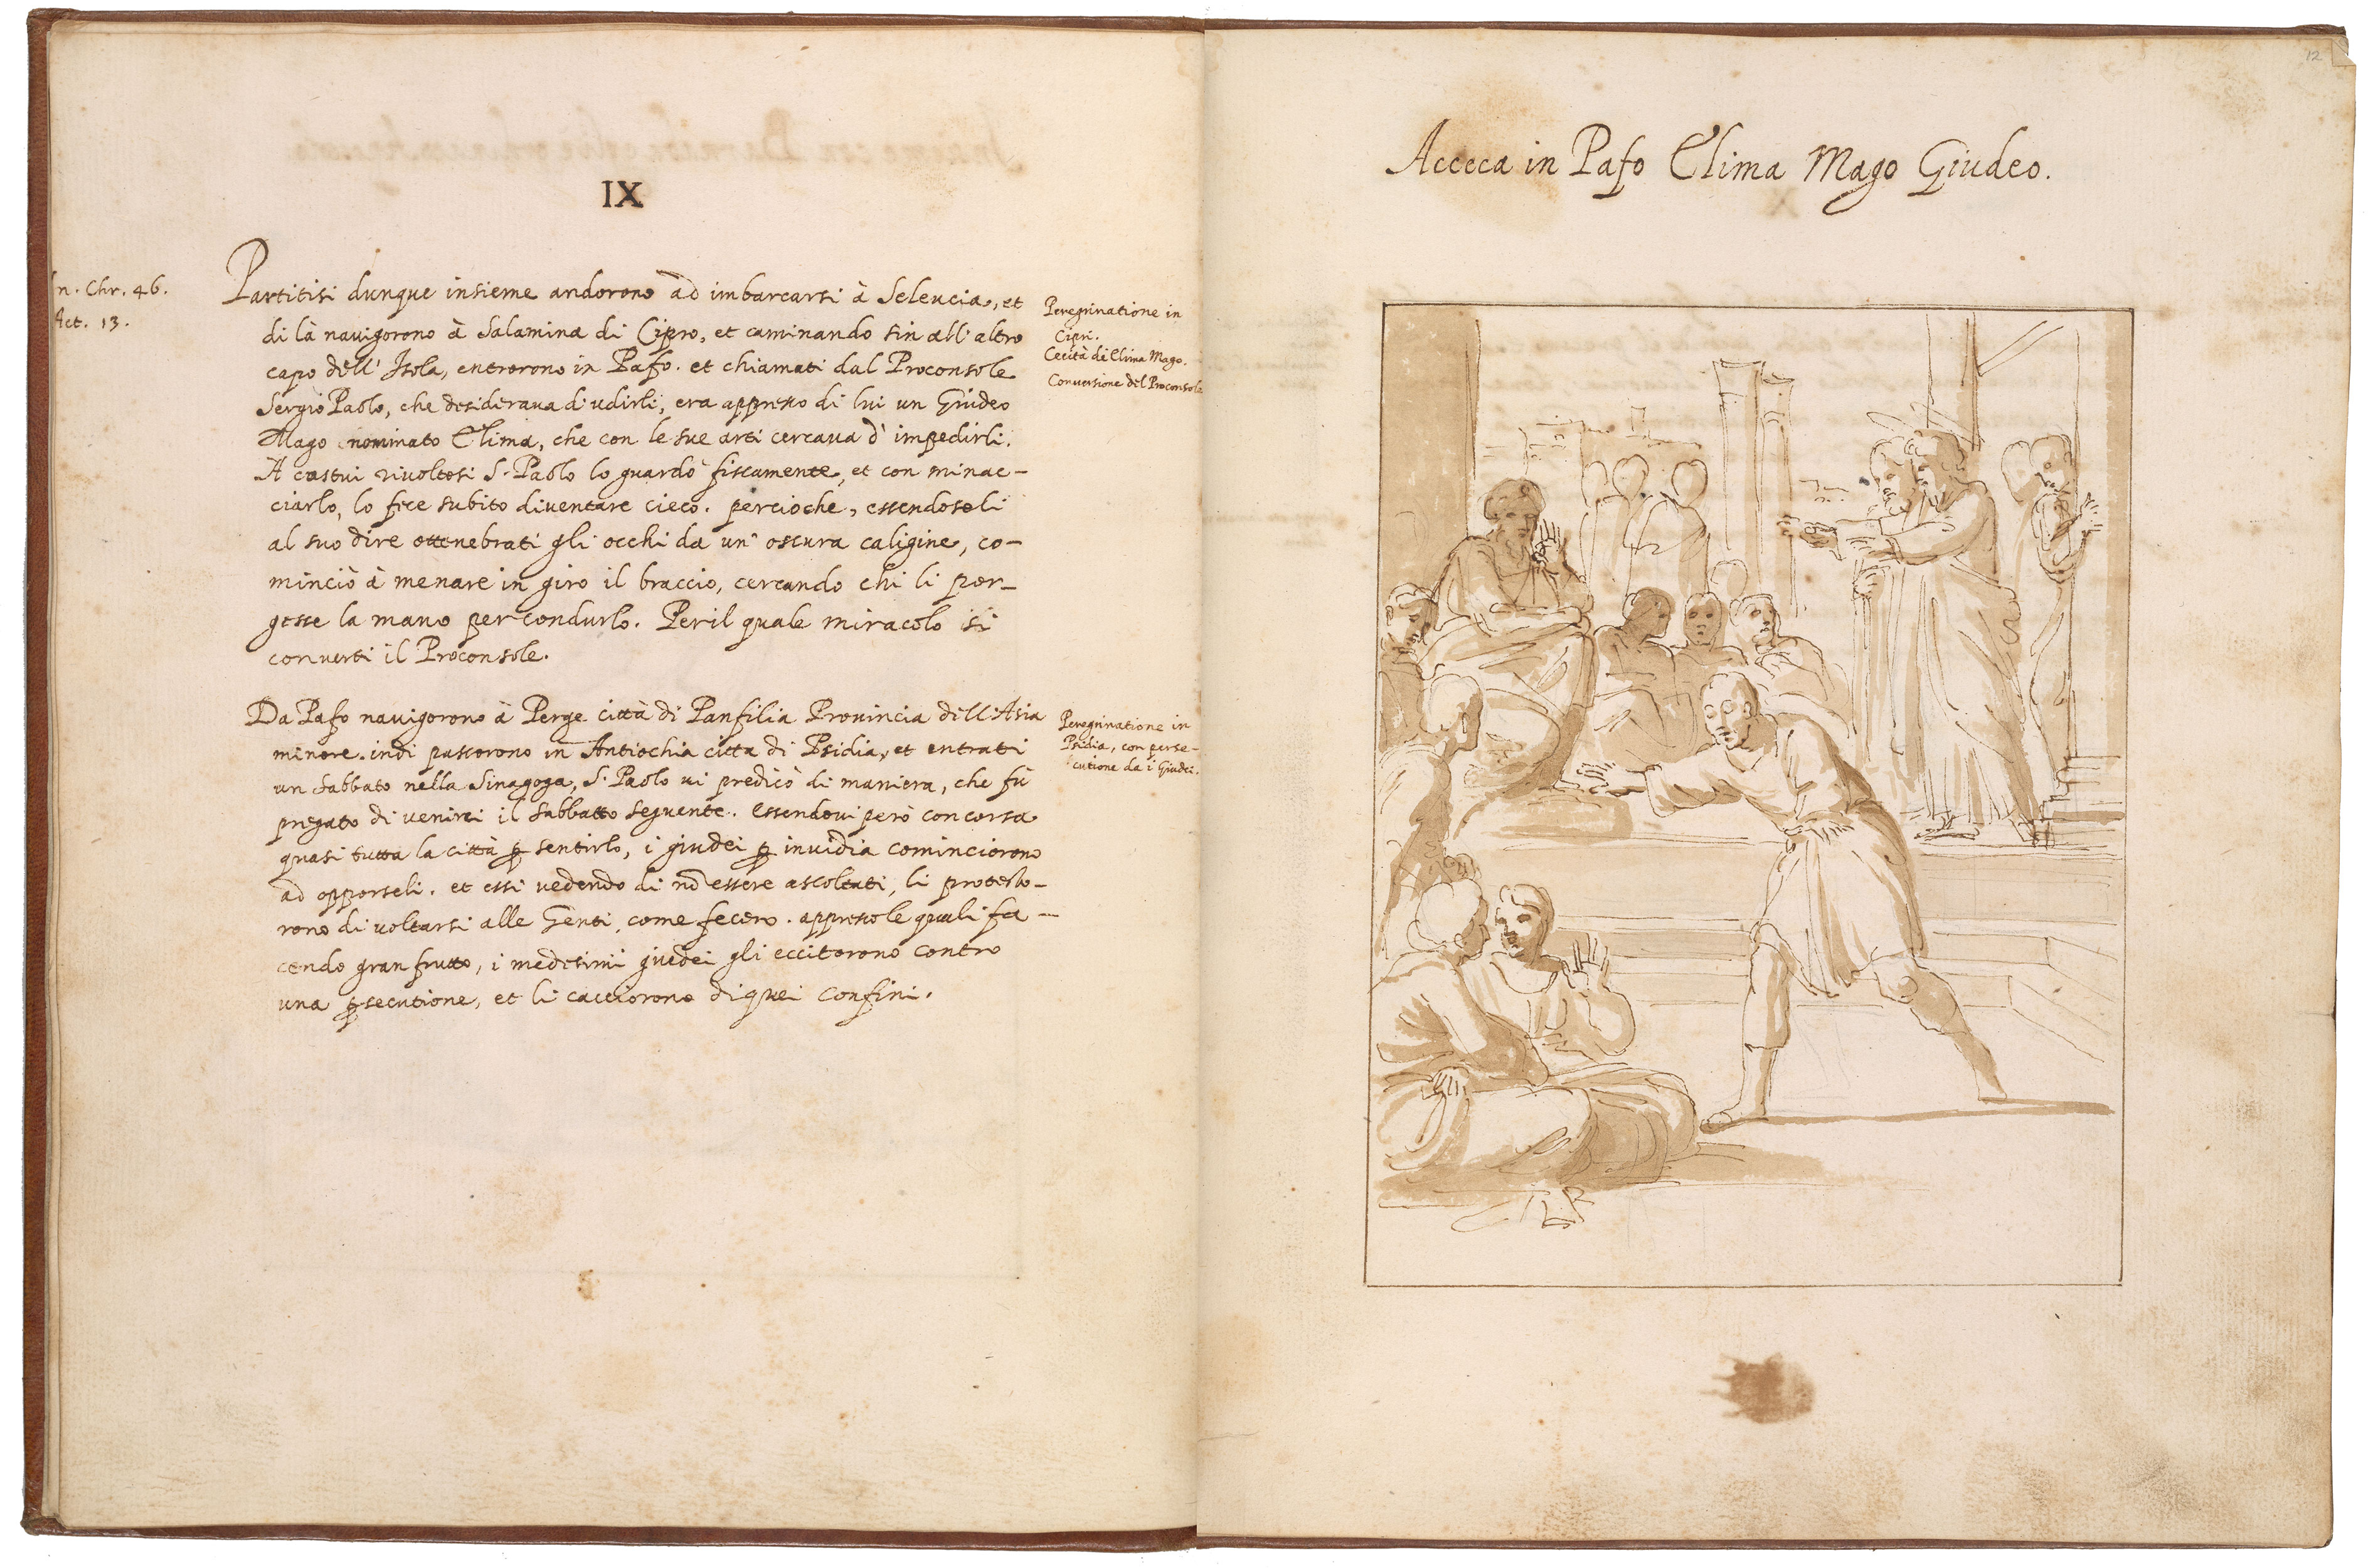 IX
An. Chr. 46.
Act. 13.
Partitisi dunque insieme andorono ad imbarcarsi à Seleucia, et
di là nauigorono à Salamina di Cipro, et caminando sin all' altro
capo dell' Isola, entrorono in Pafo. et chiamati dal Proconsole
Sergio Paolo, che desideraua di udirli, era appresso di lui un Giudeo
Mago nominato Elima, che con le sue arti cercaua d' impedirli.
A costui riuoltosi S. Paolo lo guardò fissamente, et con minac-
ciarlo, lo fece subito diuentare cieco. percioche, essendoseli
al suo dire ottenebrati gli occhi da un' oscura caligine, co-
minciò à menare in giro il braccio, cercando chi li por-
gesse la mano per condurlo. Per il quale miracolo si
conuerti il Proconsole.
Peregrinatione in
Cipri.
Cecità di Elima Mago.
Conuersione del Proconsole
Da Pafo nauigorono à Perge città di Panfilia Prouincia dell' Asia
minore. indi passorono in Antiochia citta di Psidia, et entrati
un Sabbato nella Sinagoga, S. Paolo ui predicò di maniera, che fù
pregato di venirci il Sabbatto seguente. Essendoui però concorsa
quasi tutta la città ꝑ sentirlo, i giudei ꝑ inuidia cominciorono
ad opporseli. et essi vedendo di nõ essere ascoltati, li protesto-
rono di voltarsi alle Genti, come fecero. appresso le quali fa-
cendo gran frutto, i medesimi giudei gli eccitorono contro
una ꝑsecutione, et li cacciorono di quei confini.
Peregrinatione in
Psidia, con perse-
cutione da i Giudei.
12
Acceca in Pafo Elima Mago Giudeo.